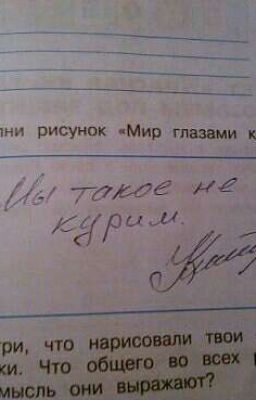 лни рисунок «Мир глазами к
Мы такое не
курим.
три, что нарисовали твои
ки. Что общего во всех
мысль они выражают?